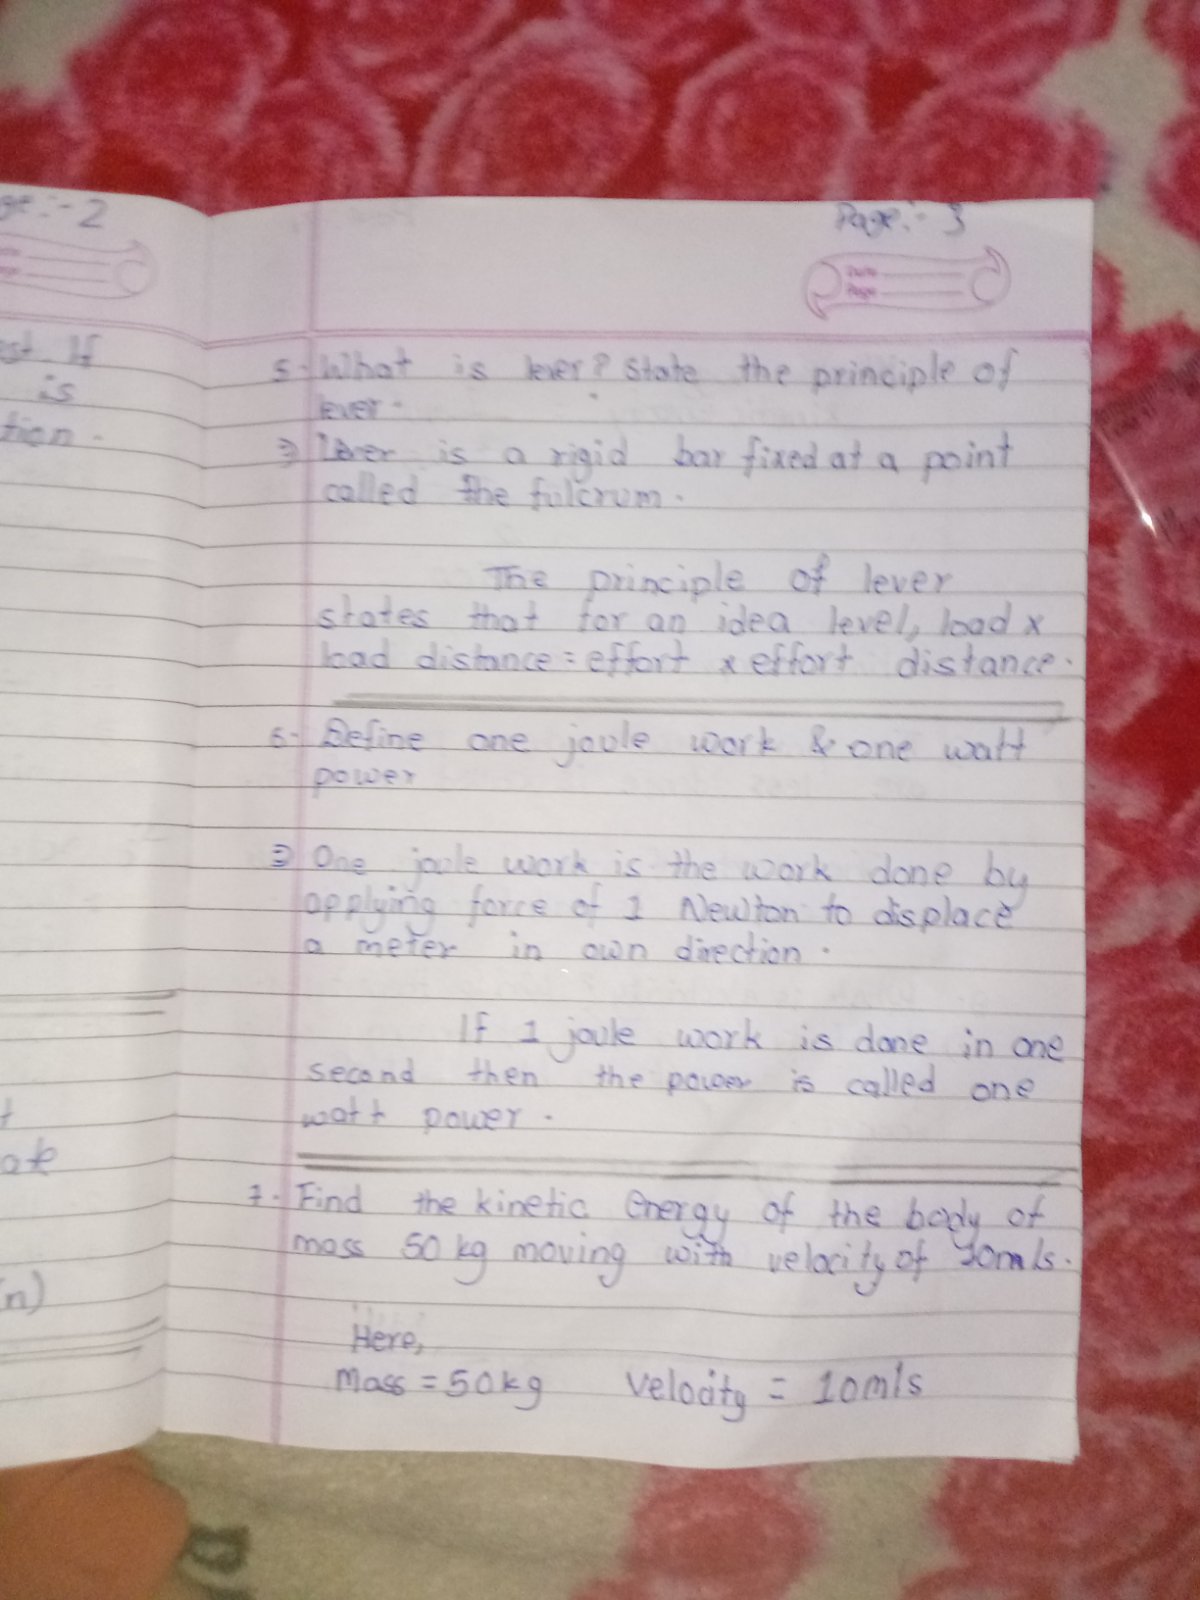 ge:- 2
est If
is
tion.
t
ate
n)
Page:- 3
Date
Page
5. What is lever? State the principle of
lever.
⇒ Lever is a rigid bar fixed at a point
called the fulcrum.
The principle of lever
states that for an idea level, load x
load distance = effort x effort distance.
6. Define one joule work & one watt
power
⇒ One joule work is the work done by
applying force of 1 Newton to displace
a meter in own direction.
If 1 joule work is done in one
second then the power is called one
watt power.
7. Find the kinetic energy of the body of
mass 50 kg moving with velocity of 10m/s.
Here,
Mass = 50kg Velocity = 10m/s